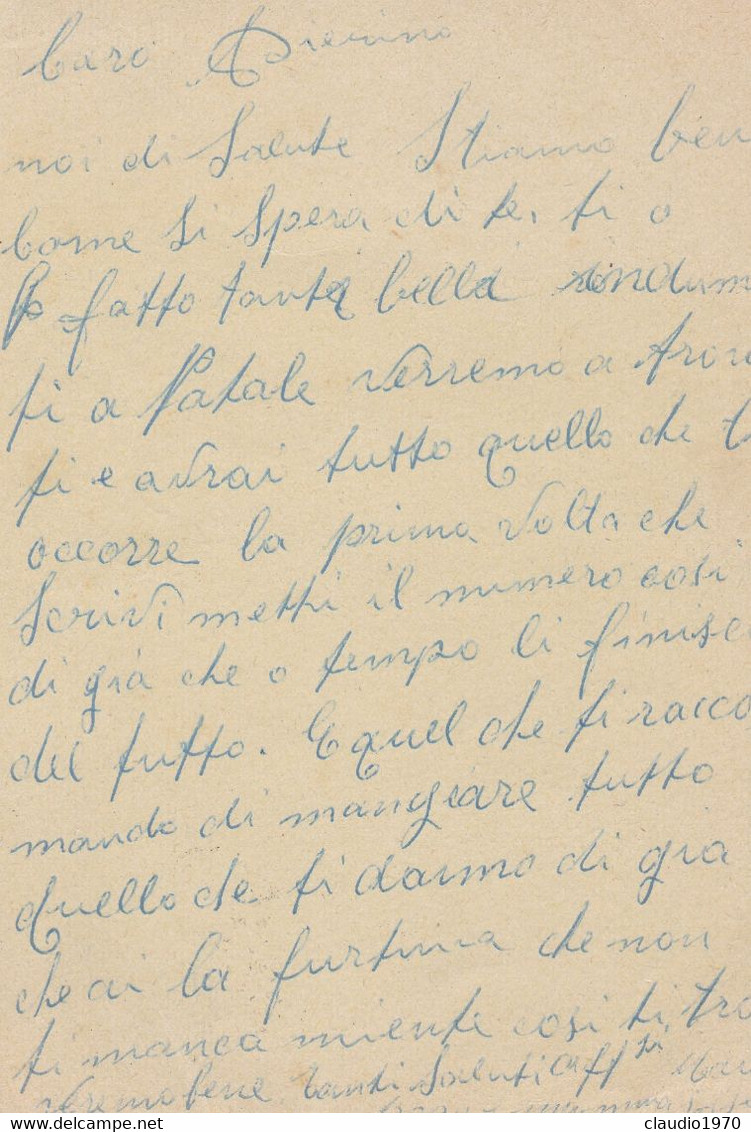 Caro Pierino
noi di Salute Stiamo ben
come si spera di te, ti o
fatto tanta bella
ti a Natale verremo a trov
ti e avrai tutto quello che t
occorre la prima volta che
Scrivi metti il numero cosi
di già che o tempo li finisc
del tutto. E quel che ti racco
mando di mangiare tutto
quello che ti danno di gia
che ai la furtuna che non
ti manca niente cosi ti tro
veremo bene tanti Saluti aff
claudio1970